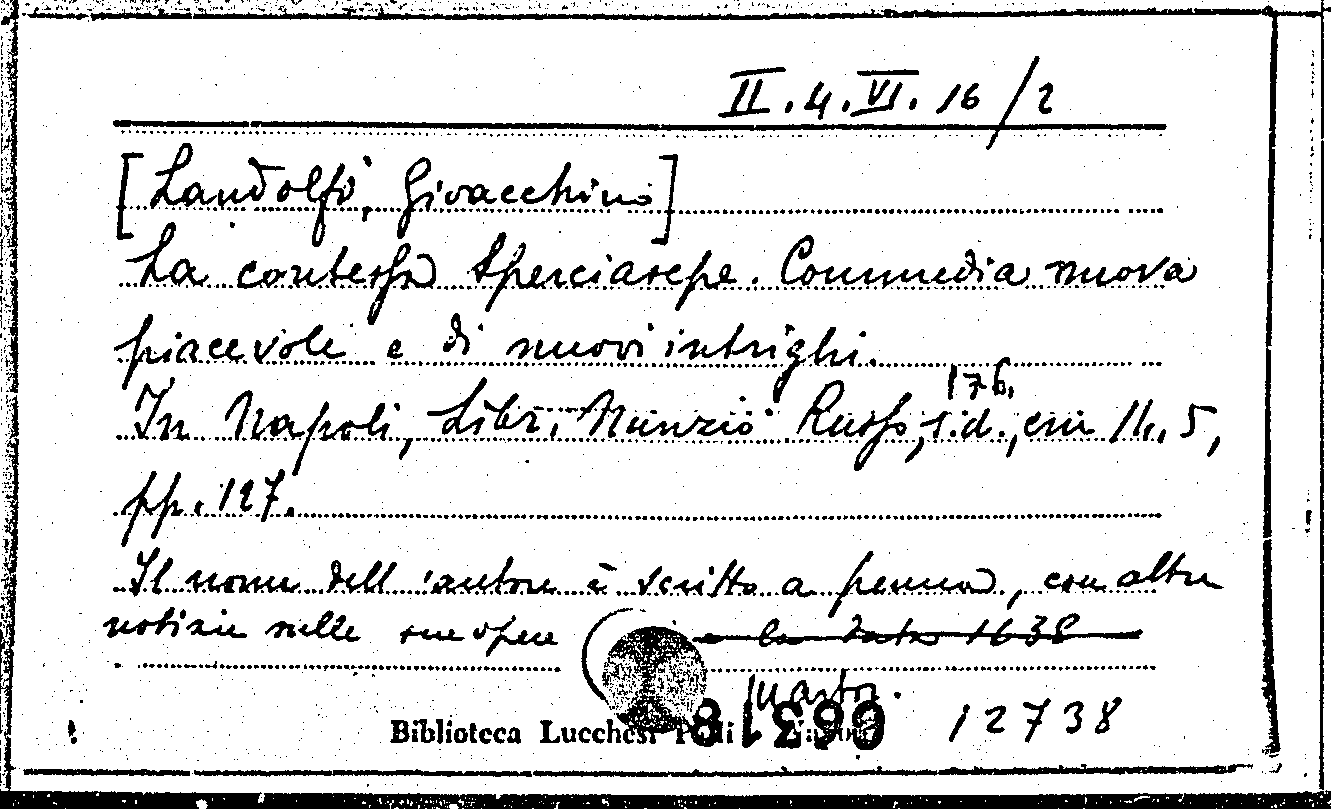 II.4.VI.16/2
[Landolfi, Gioacchino]
La contessa Sperciasepe. Commedia nuova
piacevole e di nuovi intrighi.
176.
In Napoli, Libr. Nunzio Russo, s.d., cm 11,5,
pp. 127.
Il nome dell'autore è scritto a penna, con altre
notizie sulle sue opere e la data 1638
12738
Biblioteca Lucchesi